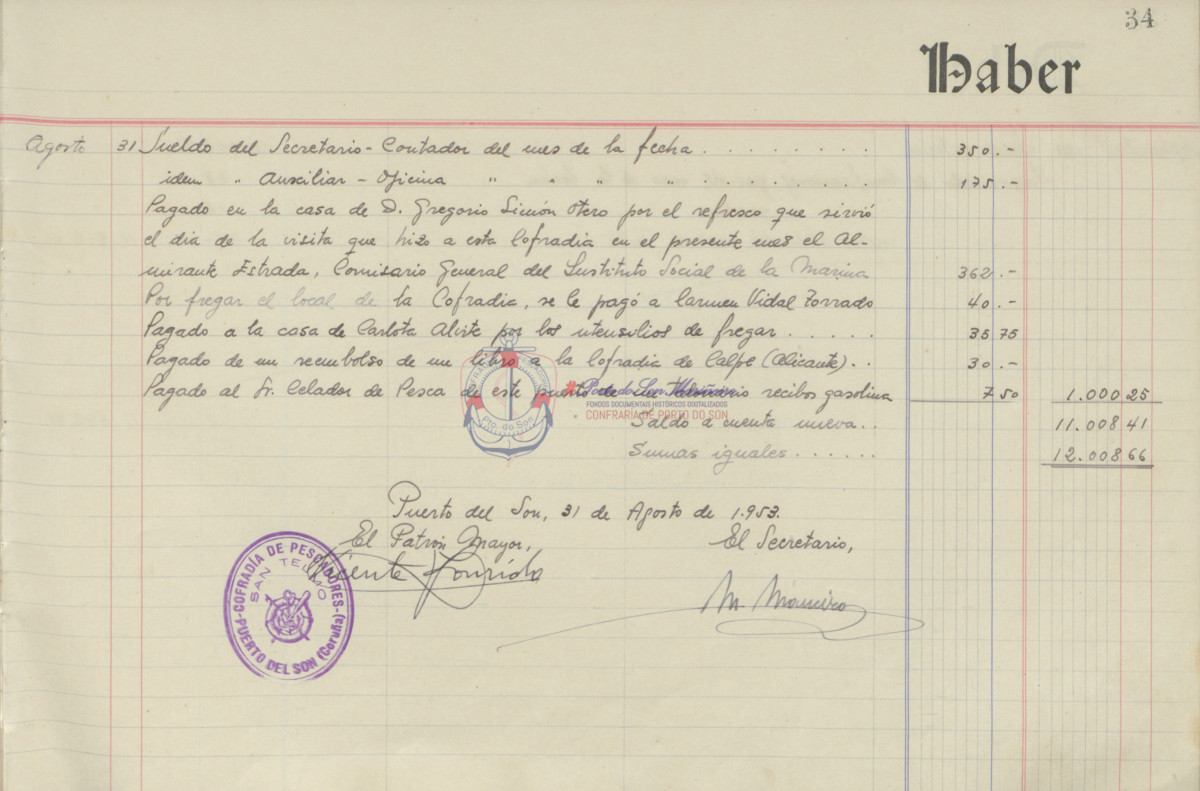 34
Haber
Agosto 31 Sueldo del Secretario-Contador del mes de la fecha . . . . . . . . . 350.-
idem " Auxiliar - Oficina " " " " . . . . . . . . . 175.-
Pagado en la casa de D. Gregorio Simón Otero por el refresco que sirvió
el dia de la visita que hizo a esta Cofradia en el presente mes el Al-
mirante Estrada, Comisario General del Instituto Social de la Marina 362.-
Por fregar el local de la Cofradia, se le pagó a Carmen Vidal Torrado 40.-
Pagado a la casa de Carlota Aliste por los utensilios de fregar . . . . . 35 75
Pagado de un reembolso de un libro a la Cofradia de Calpe (Alicante) . . 30.-
Pagado al Sr. Celador de Pesca de este puerto de un talonario recibos gasolina 7 50 1.000 25
Saldo a cuenta nueva . . 11.008 41
Sumas iguales . . . . . . 12.008 66
Puerto del Son, 31 de Agosto de 1.953.
El Patrón Mayor, El Secretario,
Vicente M. Maneiro
COFRADÍA DE PESCADORES
SAN TELMO
PUERTO DEL SON (Coruña)
Pto. do Son
FONDOS DOCUMENTAIS HISTÓRICOS DIXITALIZADOS
CONFRARÍA DE PORTO DO SON